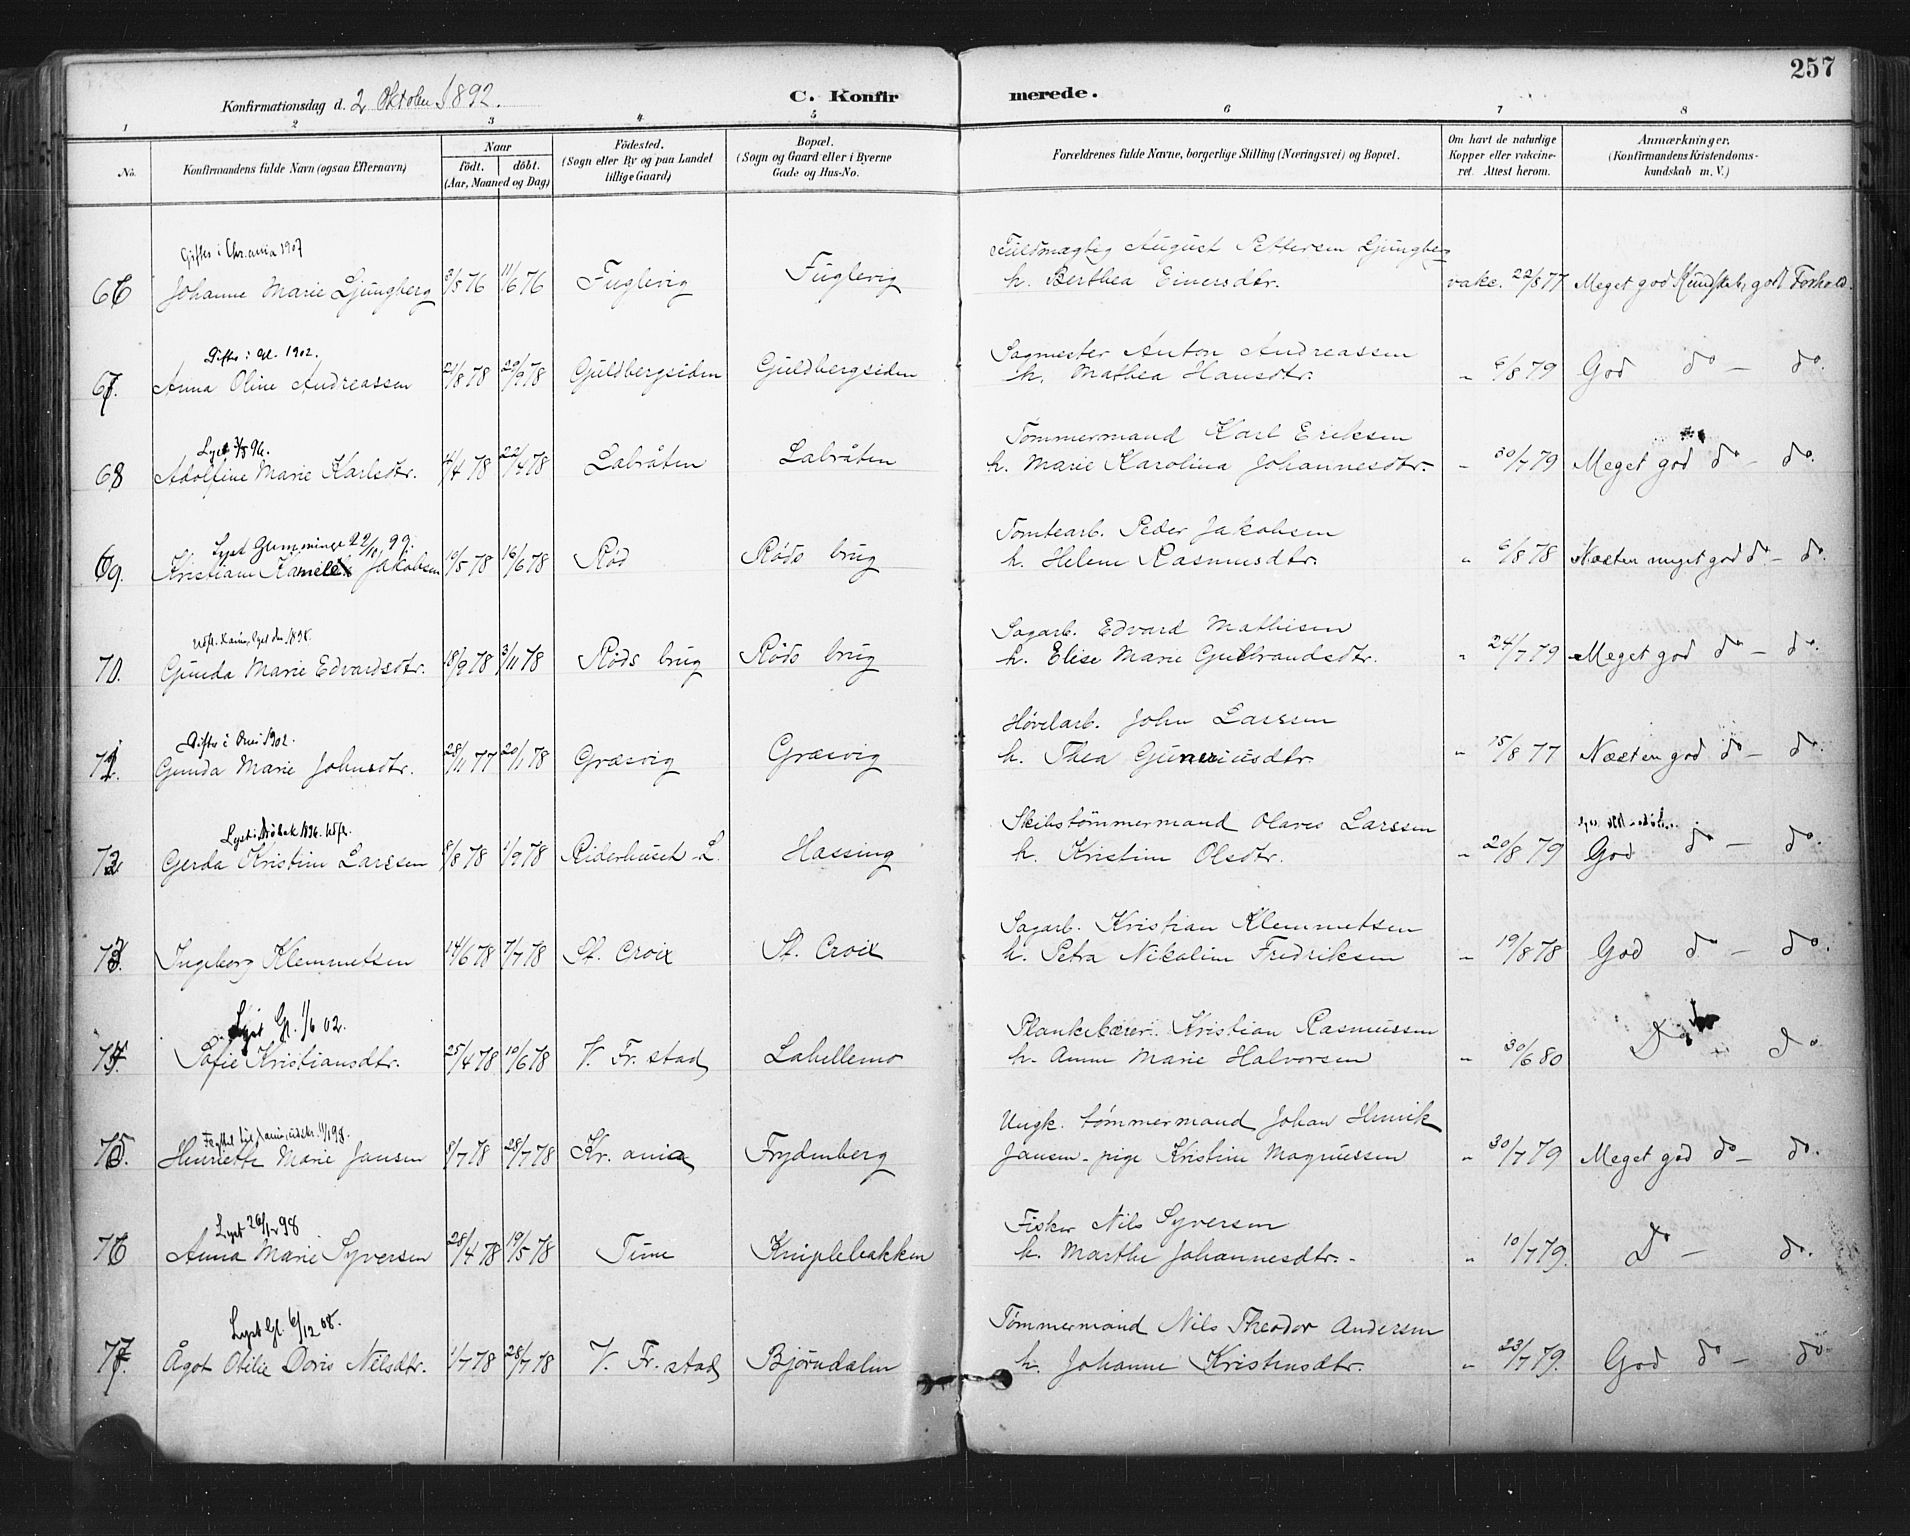 257
Konfirmationsdag d. 2 Oktober 1892.
C. Konfirmerede.
1 2 3 4 5 6 7 8
No.
Konfirmandens fulde Navn (ogsaa Efternavn)
Naar
födt. döbt.
(Aar, Maaned og Dag)
Födested.
(Sogn eller By og paa Landet
tillige Gaard)
Bopæl.
(Sogn og Gaard eller i Byerne
Gade og Hus-No.
Forældrenes fulde Navne, borgerlige Stilling (Næringsvei) og Bopæl.
Om havt de naturlige
Kopper eller vakcine-
ret. Attest herom.
Anmærkninger.
(Konfirmandens Kristendoms-
kundskab m. V.)
Giftes i Chr.ania 1907
Fuldmægtig August Pettersen Ljungberg
66 Johanne Marie Ljungberg 3/5 76 11/6 76 Fuglevig Fuglevig h. Berthea Einersdtr. vakc. 22/8 77 Meget god Kundskab, godt Forhold.
Giftes i Gl. 1902.
Sagmester Anton Andreassen
67. Anna Oline Andreassen 21/8 78 29/9 78 Guldbergsiden Guldbergsiden h. Mathea Hansdtr. " 6/8 79 God do – do.
Lyst 3/5 96.
Tømmermand Karl Eriksen
68 Adolfine Marie Karlsdtr. 4/4 78 22/4 78 Labråten Labråten h. Marie Karolina Johannesdtr. " 30/7 79 Meget god do – do.
Lyst Glemminge 22/10 99.
Tomtearb. Peder Jakobsen
69. Kristiane Jakobsen 19/5 78 16/6 78 Rød Røds brug h. Helene Rasmusdtr. " 6/8 78 Næsten meget god do – do.
1898.
Sagarb. Edvard Mathisen
70. Gunda Marie Edvardsdtr. 18/9 78 3/11 78 Røds brug Røds brug h. Elise Marie Gulbrandsdtr. " 24/7 79 Meget god do – do.
Giftes i Onsø 1902.
Høvelarb. John Larssen
71. Gunda Marie Johnsdtr. 28/11 77 20/1 78 Græsvig Græsvig h. Thea Guneriusdtr. " 15/8 77 Næsten god do – do.
Lyst i Drøbak 1896.
Skibstømmermand Olaves Larssen
72. Gerda Kristine Larssen 8/8 78 1/9 78 Riderhuset L. Hassing h. Kristine Olsdtr. " 20/8 79 God do – do.
Sagarb. Kristian Klemmetsen
73. Ingeborg Klemmetsen 14/6 78 7/7 78 St. Croix St. Croix h. Petra Nikoline Fredriksen " 19/8 78 God do – do.
Lyst Gl. 1/6 02.
Plankebærer Kristian Rasmussen
74. Sofie Kristiansdtr. 25/4 78 10/6 78 V. Fr.stad Labellemo h. Anne Marie Halvorsen " 30/6 80 Do do
Ungk. tømmermand Johan Henrik
75. Henriette Marie Jansen 8/7 78 28/7 78 Kr.ania Frydenberg Jansen – pige Kristine Magnussen " 30/7 79 Meget god do – do.
Lyst 26/12 98
Fisker Nils Syversen
76 Anna Marie Syversen 28/4 78 19/5 78 Tune Kniplebakken h. Marthe Johannesdtr. " 10/7 79. Do – do.
Lyst Gl. 6/12 08.
Tømmermand Nils Theodor Andersen
77. Ågot Otilie Doris Nilsdtr. 1/7 78 28/7 78 V. Fr.stad Bjørndalen h. Johanne Kristensdtr. " 23/7 79. God do – do.